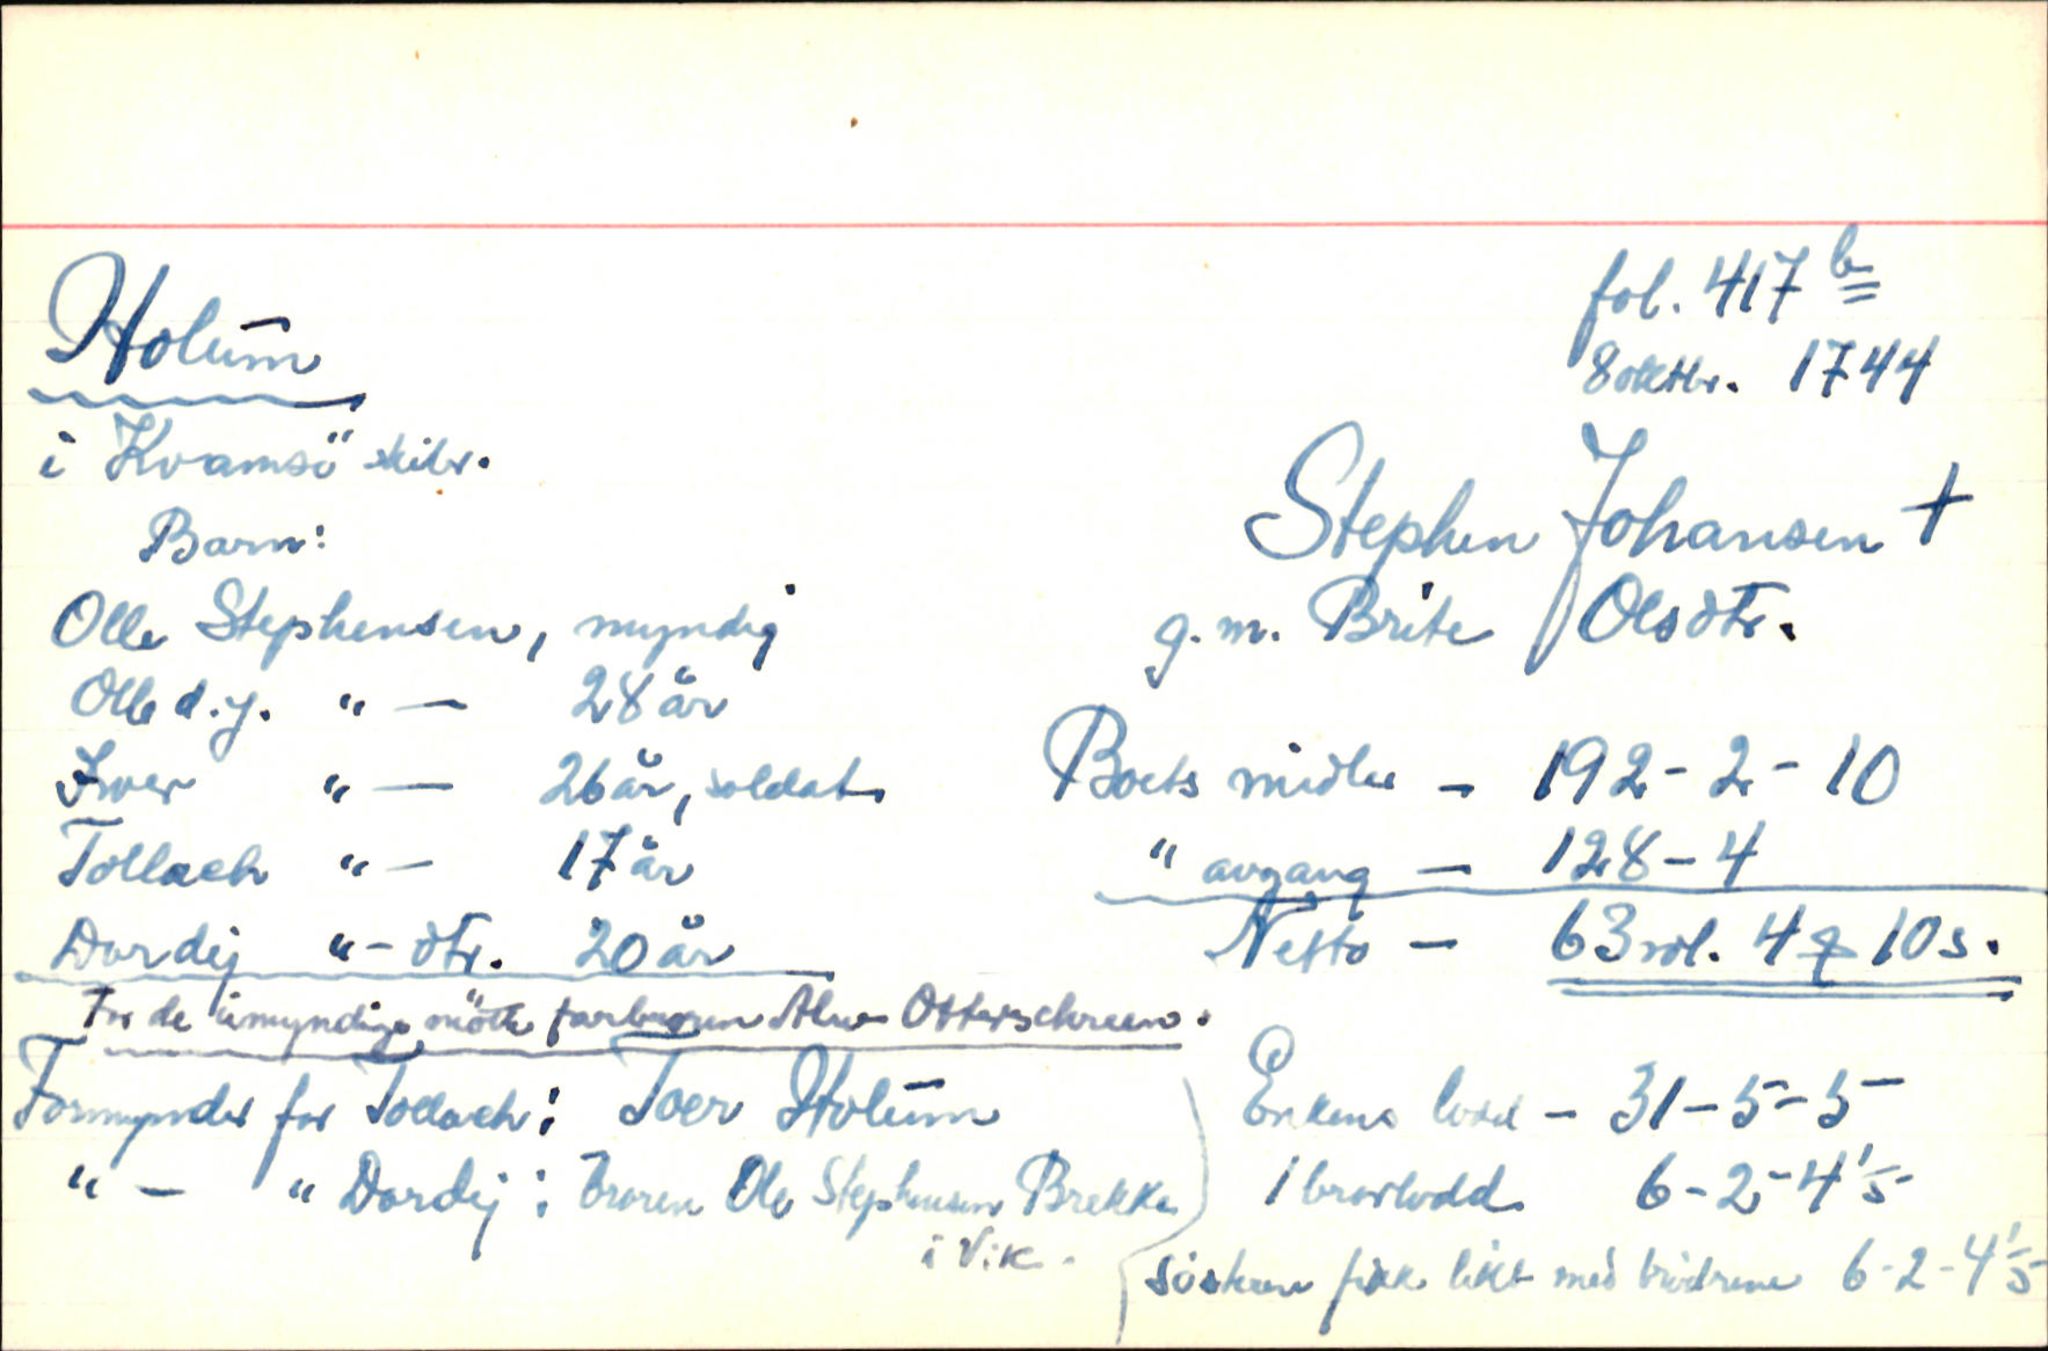 Holum
i Kvamsö skibr.
Barn:
Olle Stephensen, myndig
Olle d.y. " — 28 år
Iver " — 26 år, soldat
Tollach " — 17 år
Dordej " - dtr. 20 år
For de umyndige mötte farbroren Otterschreen.
Formynder for Tollach: Toer Holum
" — " Dordej: broren Ole Stephensen Brekke
i Vik.
fol. 417 b
8 oktbr. 1744
Stephen Johansen †
g.m. Brite Olsdtr.
Boets midler — 192 - 2 - 10
" avgang — 128 - 4
Netto — 63 rdl. 4 ƶ 10 s.
Enkens lodd — 31 - 5 - 5
1 brorlodd 6 - 2 - 4 1/5
Sösteren fikk likt med brödrene 6 - 2 - 4 1/5